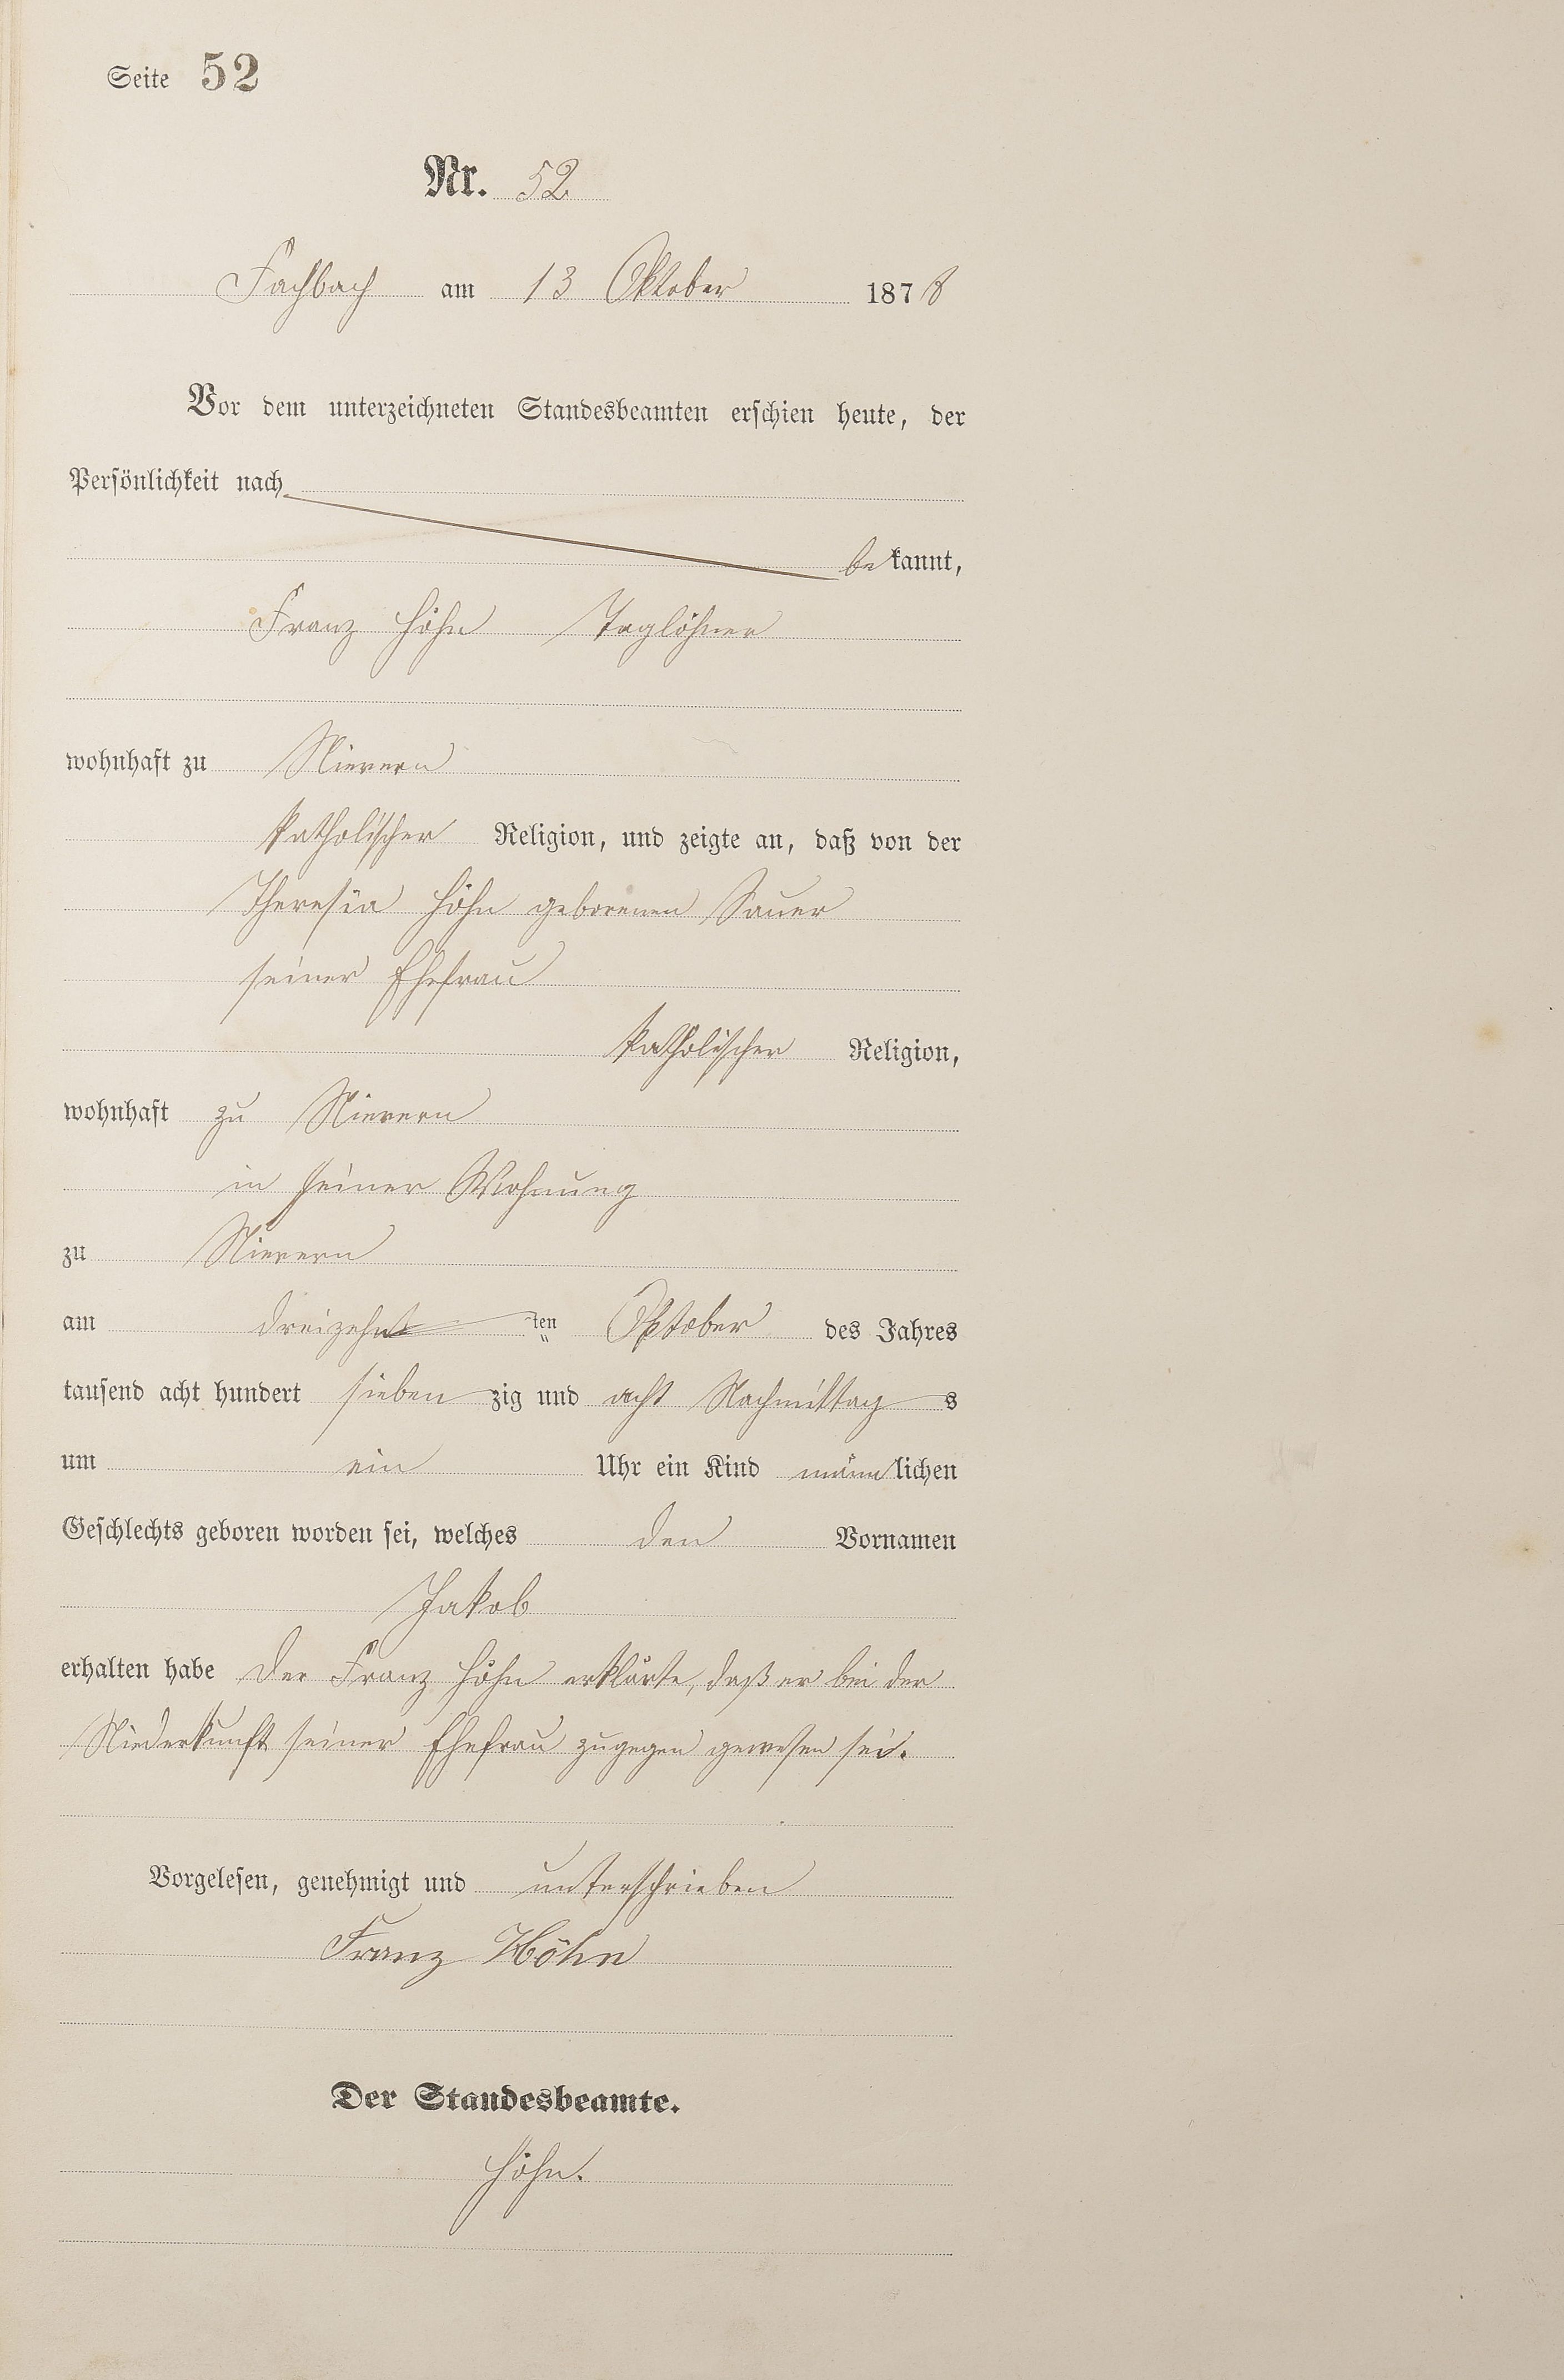 Seite 52
Nr. 52
Fachbach am 13 Oktober 1878
Vor dem unterzeichneten Standesbeamten erschien heute, der
Persönlichkeit nach
bekannt,
Franz Höhn Taglöhner
wohnhaft zu Nievern
katholischer Religion, und zeigte an, daß von der
Theresia Höhn geborenen Sauer
seiner Ehefrau
katholischer Religion,
wohnhaft zu Nievern
in seiner Wohnung
zu Nievern
am dreizehnten Oktober des Jahres
tausend acht hundert siebenzig und acht Nachmittags
um ein Uhr ein Kind männlichen
Geschlechts geboren worden sei, welches den Vornamen
Jakob
erhalten habe Der Franz Höhn erklärte, daß er bei der
Niederkunft seiner Ehefrau zugegen gewesen sei.
Vorgelesen, genehmigt und unterschrieben
Franz Höhn
Der Standesbeamte.
Höhn.